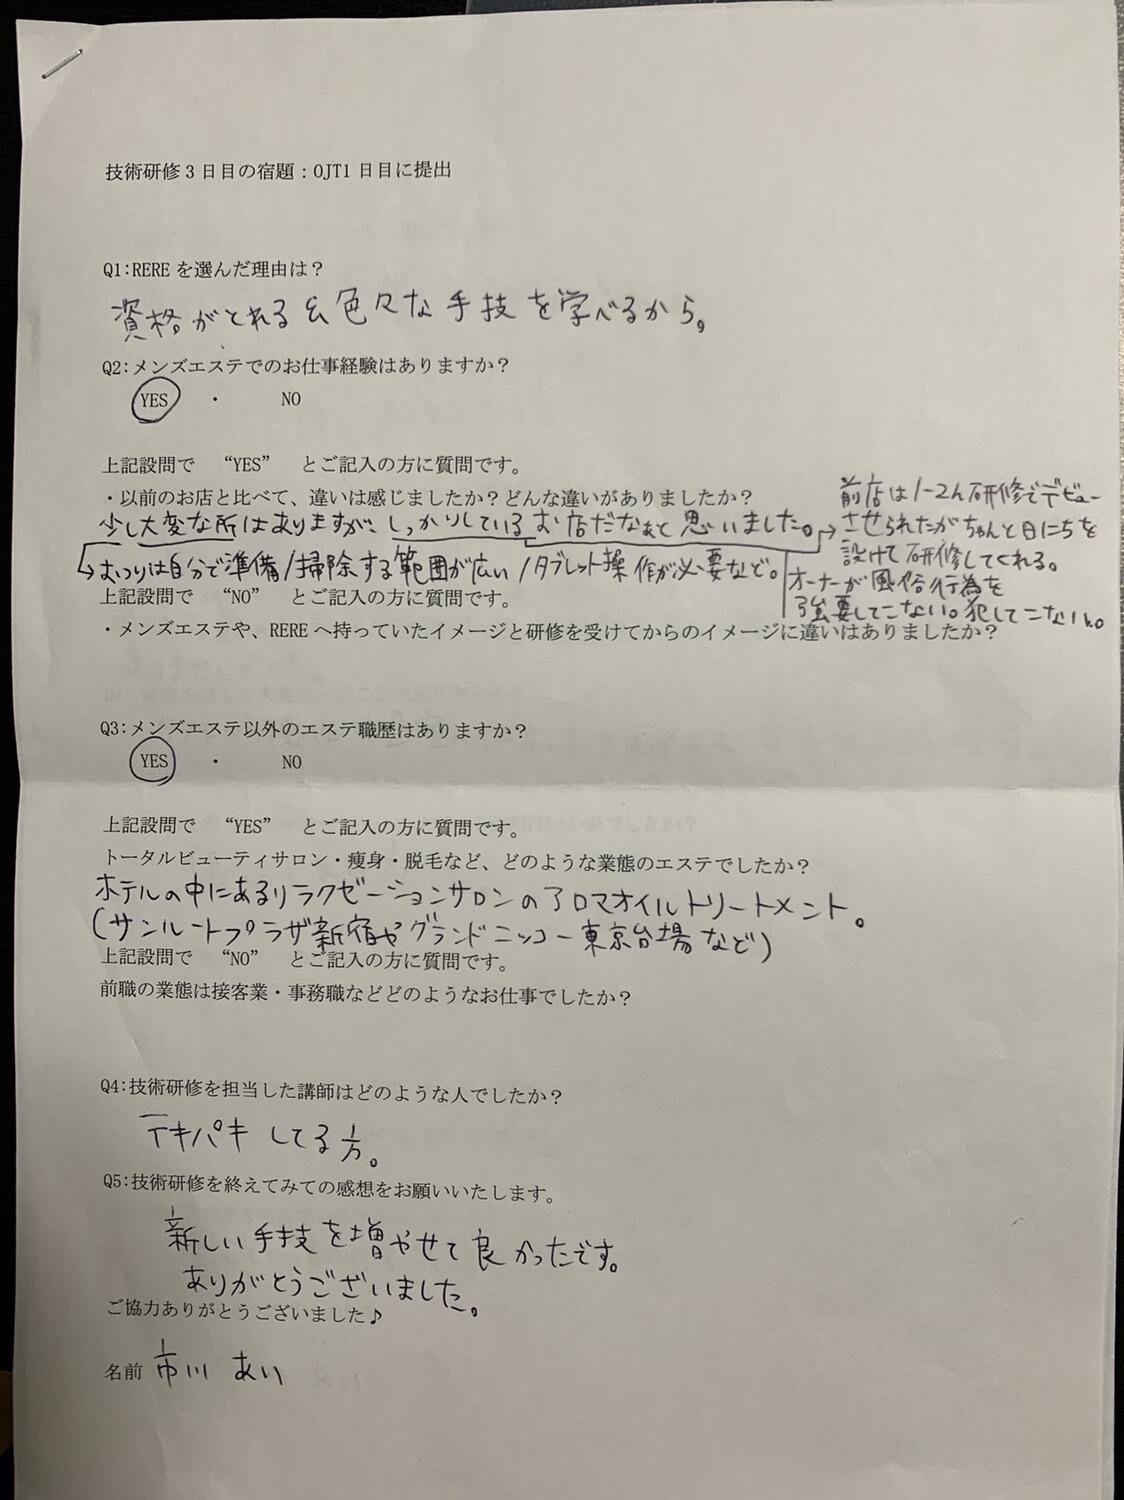 技術研修3日目の宿題：OJT1日目に提出
Q1:REREを選んだ理由は？
資格がとれる＆色々な手技を学べるから。
Q2:メンズエステでのお仕事経験はありますか？
YES ・ NO
上記設問で “YES” とご記入の方に質問です。
・以前のお店と比べて、違いは感じましたか？どんな違いがありましたか？
少し大変な所はありますが、しっかりしているお店だなぁと思いました。
→おつりは自分で準備/掃除する範囲が広い/タブレット操作が必要など。
前店は1~2h研修でデビュー
させられたがちゃんと日にちを
設けて研修してくれる。
オーナーが風俗行為を
強要してこない。犯してこない。
上記設問で “NO” とご記入の方に質問です。
・メンズエステや、REREへ持っていたイメージと研修を受けてからのイメージに違いはありましたか？
Q3:メンズエステ以外のエステ職歴はありますか？
YES ・ NO
上記設問で “YES” とご記入の方に質問です。
トータルビューティサロン・痩身・脱毛など、どのような業態のエステでしたか？
ホテルの中にあるリラクゼーションサロンのアロマオイルトリートメント。
(サンルートプラザ新宿やグランドニッコー東京台場など)
上記設問で “NO” とご記入の方に質問です。
前職の業態は接客業・事務職などどのようなお仕事でしたか？
Q4:技術研修を担当した講師はどのような人でしたか？
テキパキしてる方。
Q5:技術研修を終えてみての感想をお願いいたします。
新しい手技を増やせて良かったです。
ありがとうございました。
ご協力ありがとうございました♪
名前 市川 あい